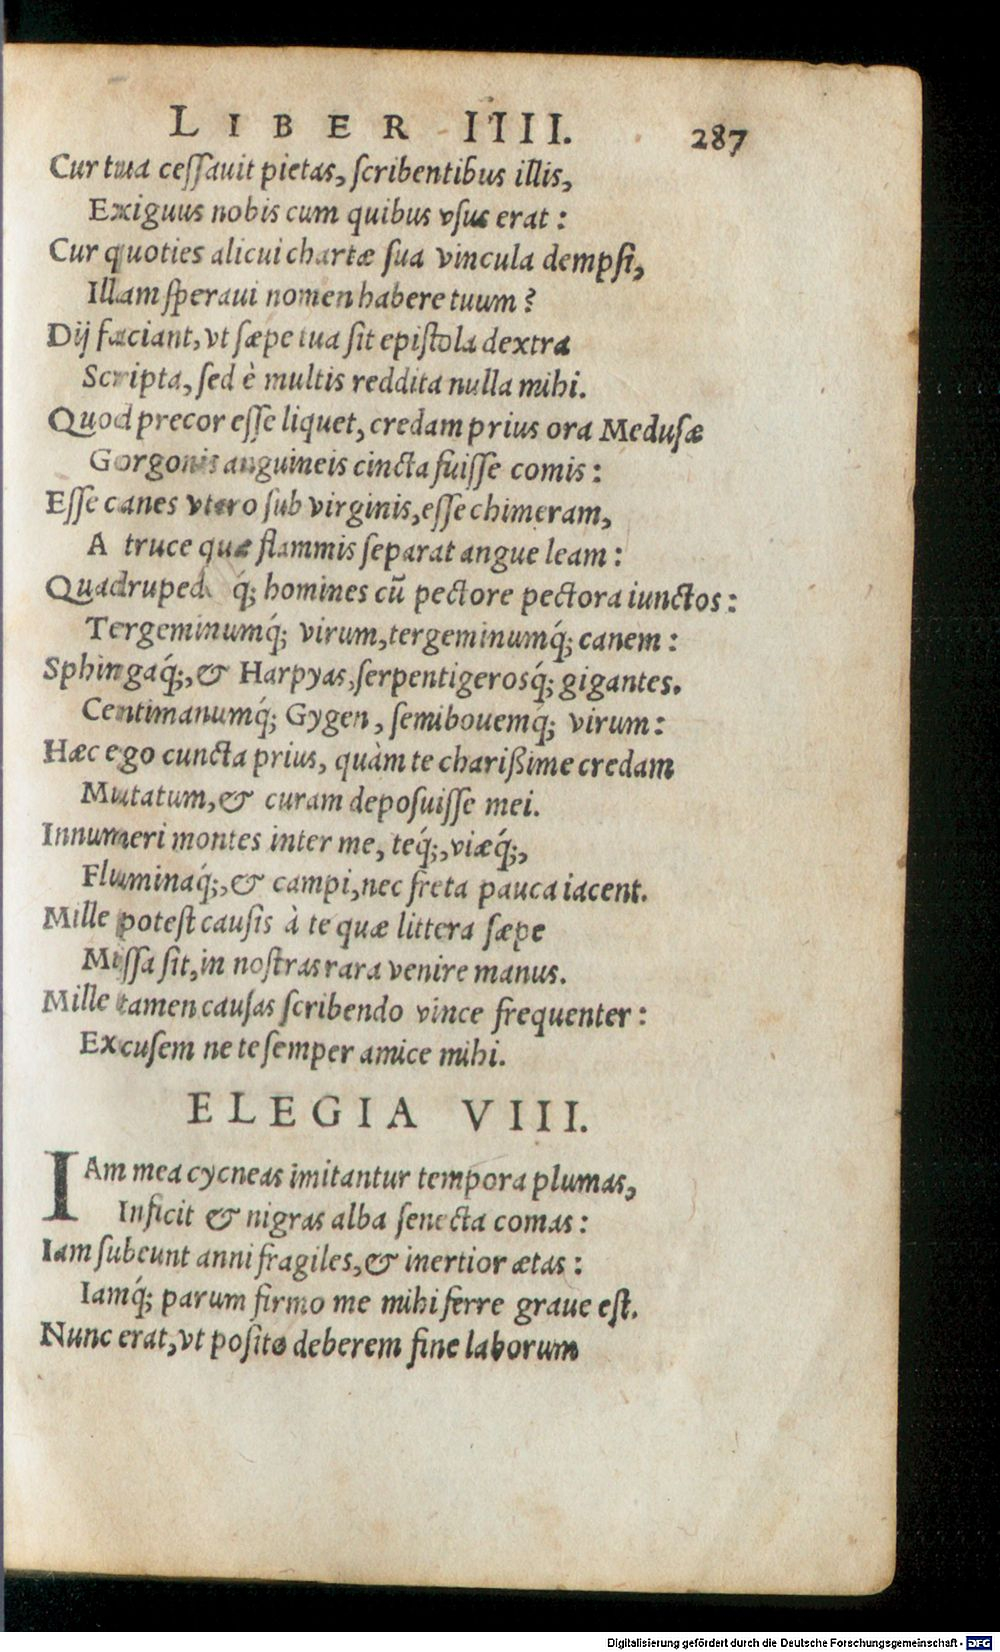 LIBER IIII. 287
Cur tua ceſſauit pietas, ſcribentibus illis,
Exiguus nobis cum quibus vſus erat:
Cur quoties alicui chartæ ſua vincula dempſi,
Illam ſperaui nomen habere tuum?
Dij faciant, vt ſæpe tua ſit epiſtola dextra
Scripta, ſed è multis reddita nulla mihi.
Quod precor eſſe liquet, credam prius ora Meduſæ
Gorgonis anguineis cincta fuiſſe comis:
Eſſe canes vtero ſub virginis, eſſe chimeram,
A truce quæ flammis ſeparat angue leam:
Quadruped q́; homines cū pectore pectora iunctos:
Tergeminumq́; virum, tergeminumq́; canem:
Sphingaq́;, & Harpyas, ſerpentigerosq́; gigantes.
Centimanumq́; Gygen, ſemibouemq́; virum:
Hæc ego cuncta prius, quàm te charißime credam
Mutatum, & curam depoſuiſſe mei.
Innumeri montes inter me, teq́;, viæq́;,
Fluminaq́;, & campi, nec freta pauca iacent.
Mille poteſt cauſis à te quæ littera ſæpe
Miſſa ſit, in noſtras rara venire manus.
Mille tamen cauſas ſcribendo vince frequenter:
Excuſem ne te ſemper amice mihi.
ELEGIA VIII.
IAm mea cycneas imitantur tempora plumas,
Inficit & nigras alba ſenecta comas:
Iam ſubeunt anni fragiles, & inertior ætas:
Iamq́; parum firmo me mihi ferre graue eſt.
Nunc erat, vt poſito deberem fine laborum
Digitalisierung gefördert durch die Deutsche Forschungsgemeinschaft - DFG